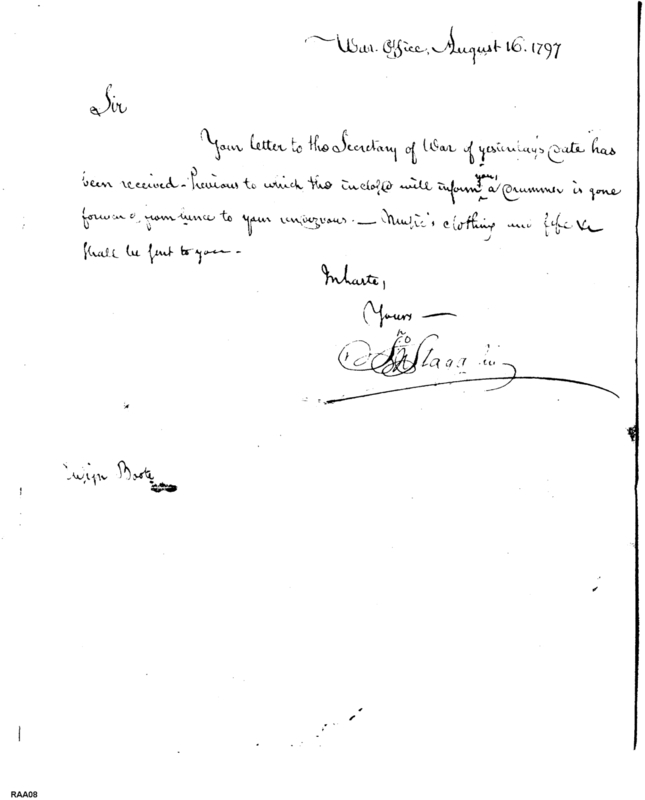 War Office, August 16. 1797
Sir
Your letter to the Secretary of War of yesterday's date has
you,
been received - Previous to which the inclosed will inform a Drummer is gone
forward from hence to your rendezvous. — Music's clothing and fife &c
shall be sent to you -
In haste,
Yours —
Jno Stagg Jr
Ensign Boote
RAA08